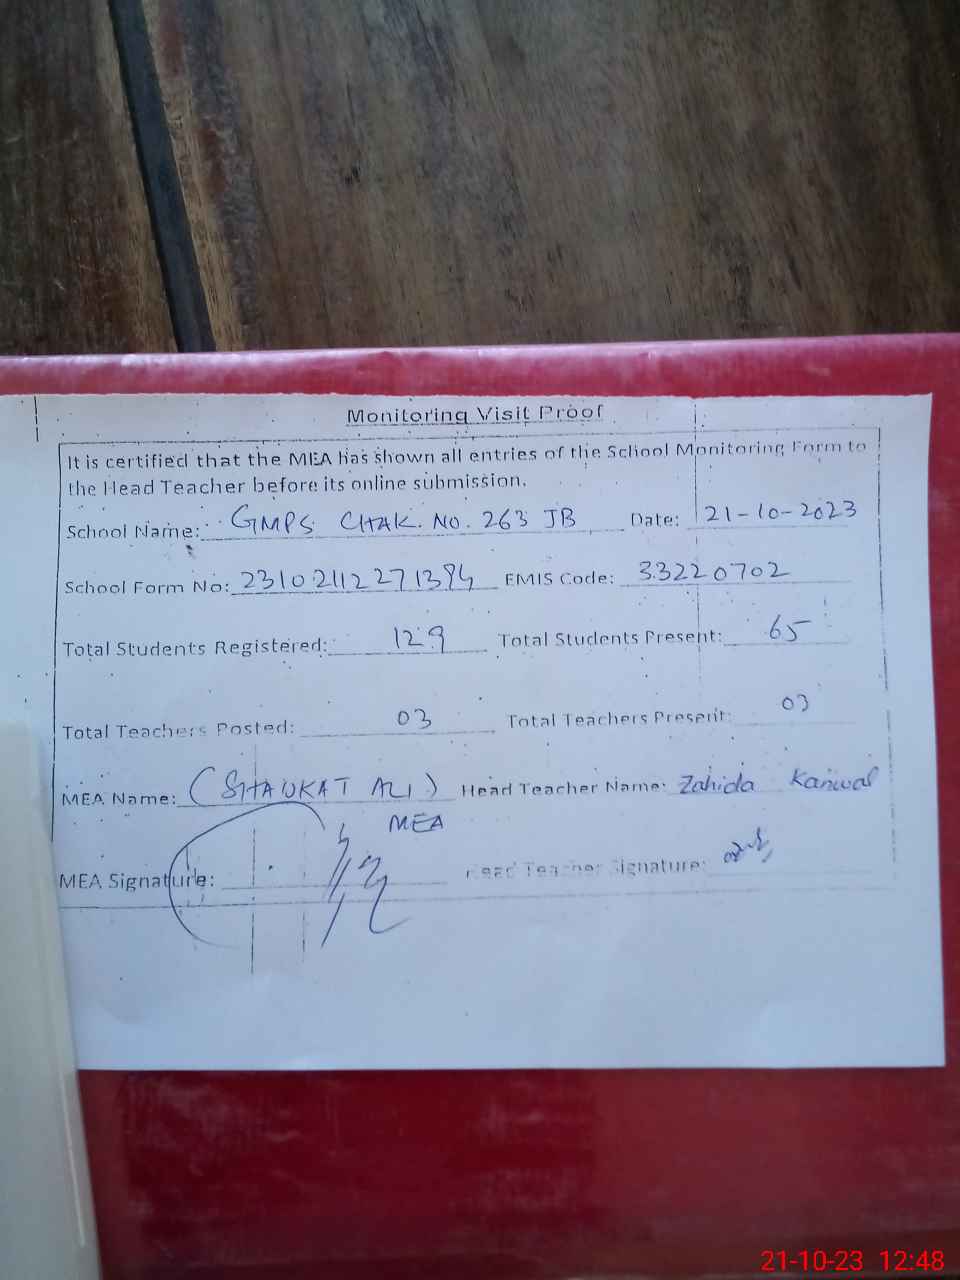 Monitoring Visit Proof
It is certified that the MEA has shown all entries of the School Monitoring Form to
the Head Teacher before its online submission.
School Name: GMPS CHAK. NO. 263 JB Date: 21-10-2023
School Form No: 23102112271394 EMIS Code: 33220702
Total Students Registered: 129 Total Students Present: 65
Total Teachers Posted: 03 Total Teachers Present: 03
MEA Name: (SHAUKAT ALI) Head Teacher Name: Zahida Kanwal
MEA
MEA Signature: Head Teacher Signature:
21-10-23 12:48